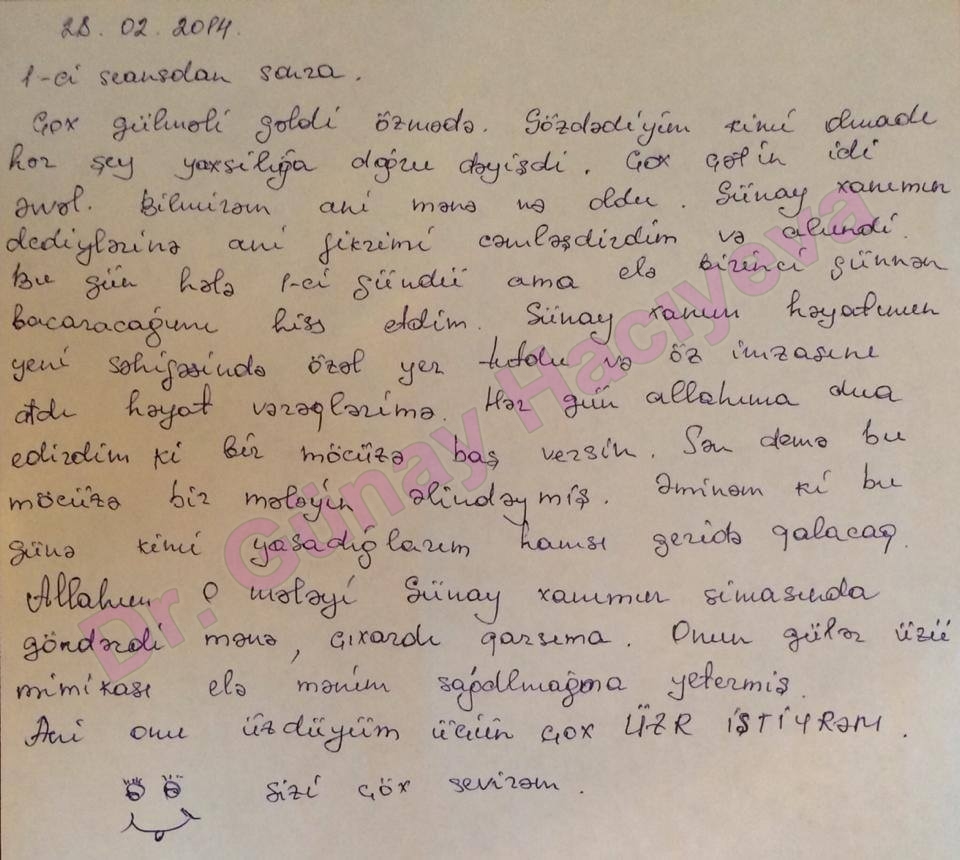 28. 02. 2014.
1-ci seansdan sonra.
Çox gülməli gəldi özmədə. Gözdədiyim kimi olmadı
hər şey yaxsılığa doğru dəyişdi. Çox çətin idi
əvvəl. Bilmirəm ani mənə nə oldu. Günay xanımın
dediylərinə ani fikrimi cəmləşdirdim və alındı.
Bu gün hələ 1-ci gündü ama elə birinci günnən
bacaracağımı hiss etdim. Günay xanım həyatımın
yeni səhifəsində özəl yer tutdu və öz imzasını
atdı həyat vərəqlərimə. Hər gün allahıma dua
edirdim ki bir möcüzə baş versin. Sən demə bu
möcüzə bir mələyin əlindəymiş. Əminəm ki bu
günə kimi yaşadığlarım hamsı geridə qalacaq.
Allahım o mələyi Günay xanımın simasında
göndərdi mənə, çıxardı qarsıma. Onun gülər üzü
mimikası elə mənim sağalmağıma yetermiş.
Ani onu üzdüyüm üçün çox ÜZR İSTİYRəM.
Sizi çöx sevirəm.
Dr. Günay Hacıyeva